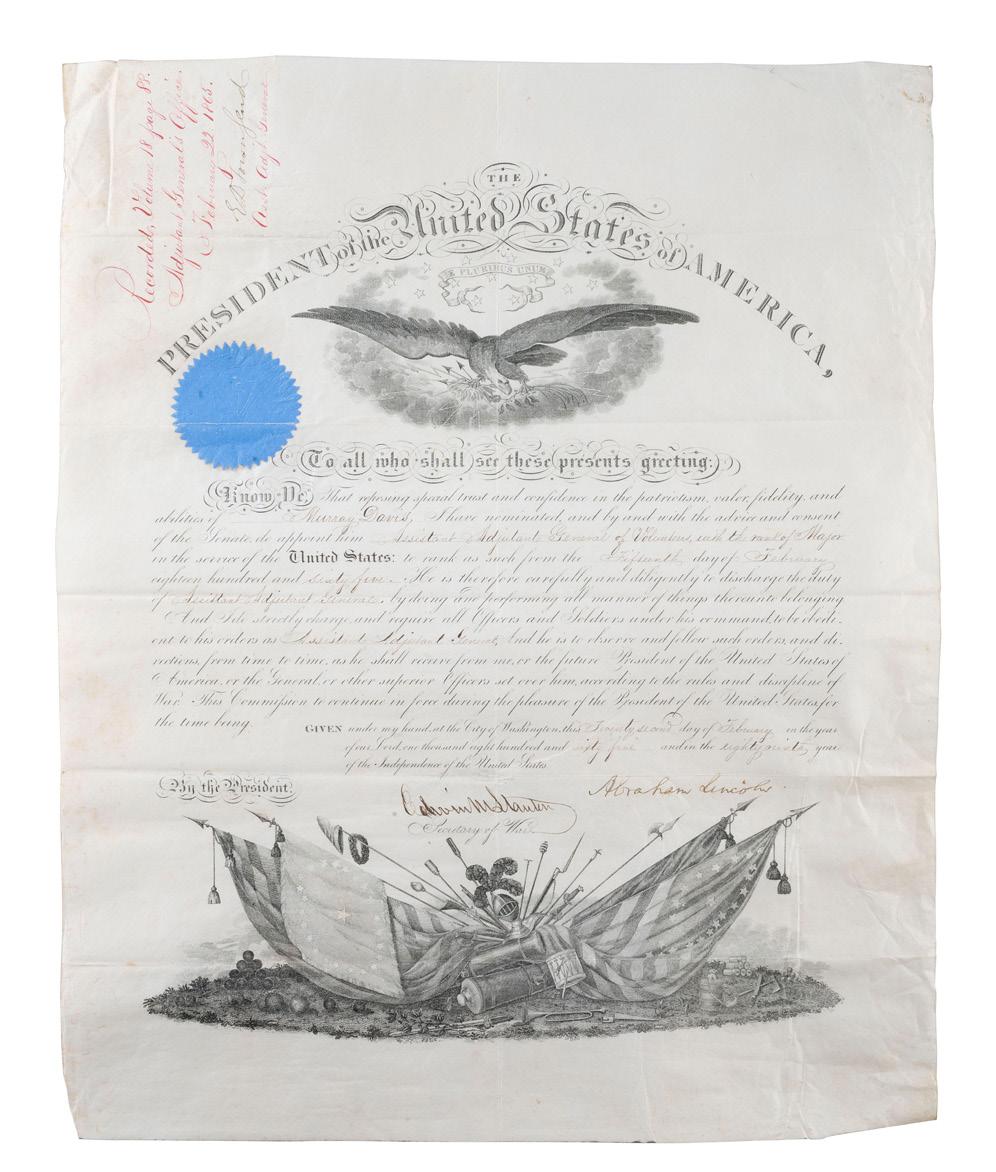 Recorded, Volume 18 page 88.
Adjutant General's Office
February 22. 1865.
E D Townsend
Asst. Adjt. General
THE
PRESIDENT of the United States of AMERICA,
E PLURIBUS UNUM
To all who shall see these presents greeting:
Know Ye, That reposing special trust and confidence in the patriotism, valor, fidelity, and
abilities of Murray Davis, I have nominated, and by and with the advice and consent
of the Senate, do appoint him Assistant Adjutant General of Volunteers, with the rank of Major
in the service of the United States: to rank as such from the Fifteenth day of February
eighteen hundred and sixty five. He is therefore carefully and diligently to discharge the duty
of Assistant Adjutant General, by doing and performing all manner of things thereunto belonging
And I do strictly charge, and require all Officers and Soldiers under his command, to be obedi-
ent to his orders as Assistant Adjutant General. And he is to observe and follow such orders, and di-
rections, from time to time, as he shall receive from me, or the future President of the United States of
America, or the General, or other superior Officers set over him, according to the rules and discipline of
War. This Commission to continue in force during the pleasure of the President of the United States, for
the time being.
GIVEN under my hand, at the City of Washington, this Twenty second day of February in the year
of our Lord, one thousand eight hundred and sixty five and in the eighty ninth year
of the Independence of the United States.
By the President.
Abraham Lincoln.
Edwin M Stanton
Secretary of War.